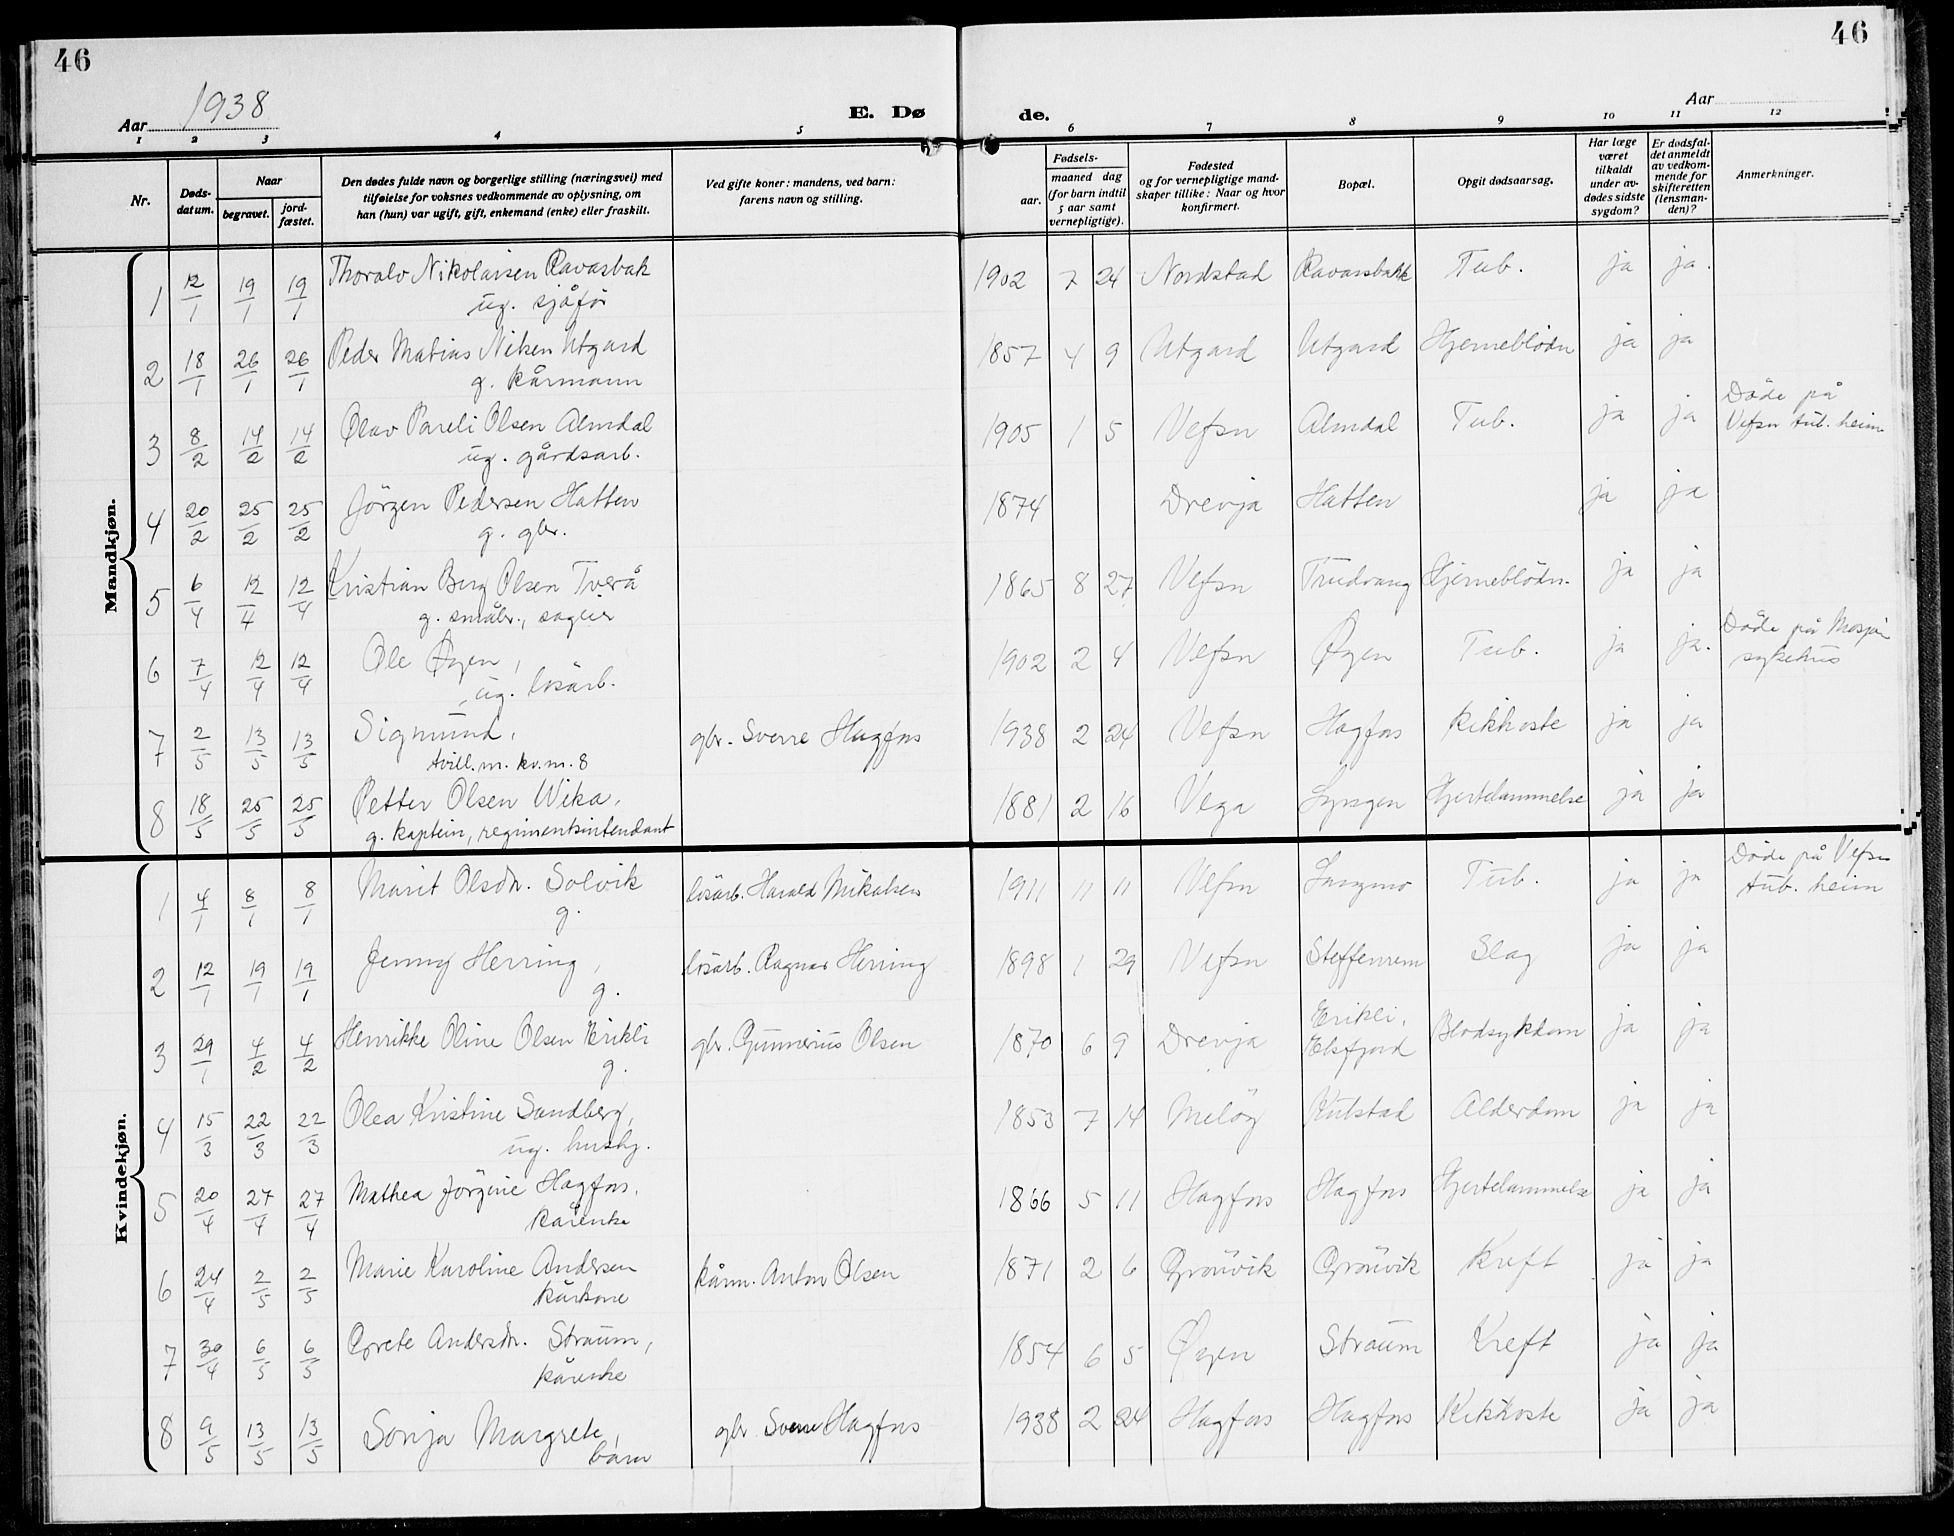 46
46
Aar 1938
E. Dø
de.
Aar
1 2 3 4 5 6 7 8 9 10 11 12
Nr.
Døds-
datum.
Naar
begravet.
jord-
fæstet.
Den dødes fulde navn og borgerlige stilling (næringsvei) med
tilføielse for voksnes vedkommende av oplysning, om
han (hun) var ugift, gift, enkemand (enke) eller fraskilt.
Ved gifte koner: mandens, ved barn:
farens navn og stilling.
Fødsels-
aar.
maaned dag
(for barn indtil
5 aar samt
vernepligtige).
Fødested
og for vernepligtige mand-
skaper tillike: Naar og hvor
konfirmert.
Bopæl.
Opgit dødsaarsag.
Har læge
været
tilkaldt
under av-
dødes sidste
sygdom?
Er dødsfal-
det anmeldt
av vedkom-
mende for
skifteretten
(lensman-
den)?
Anmerkninger.
Mandkjøn.
1 12/1 19/1 19/1 Thoralv Nikolaisen Ravasbak 1902 7 24 Nordstad Ravassbakk Tub. ja ja.
ug. sjåfør
2 18/1 26/1 26/1 Peder Matias Nilsen Utgard 1857 4 9 Utgard Utgard Hjerneblödn ja ja
g. kårmann
3 8/2 14/2 14/2 Olav Pareli Olsen Almdal 1905 1 5 Vefsn Almdal Tub. ja ja Döde på
ug. gårdsarb. Vefsn tub. heim
4 20/2 25/2 25/2 Jörgen Pedersen Hatten 1874 Drevja Hatten ja ja
g. gbr.
5 6/4 12/4 12/4 Kristian Berg Olsen Tverå 1865 8 27 Vefsn Trudvang Hjerneblödn. ja ja
g. småbr., sagier
6 7/4 12/4 12/4 Ole Øyen, 1902 2 4 Vefsn Øyen Tub. ja ja. Döde på Mosjöe
ug. lösarb. sykehus
7 2/5 13/5 13/5 Sigmund, gbr. Sverre Hagfors 1938 2 24 Vefsn Hagfors Kikhoste ja ja
tvill. m. kv.m. 8
8 18/5 25/5 25/5 Petter Olsen Wika, 1881 2 16 Vega Lyngen Hjertelammelse ja ja
g. kaptein, regimentsintendant
Kvindekjøn.
1 4/1 8/1 8/1 Marit Olsdtr. Solvik lösarb. Harald Mikalsen 1911 11 11 Vefsn Langmo Tub. ja ja Döde på Vefsn
g. tub. heim
2 12/1 19/1 19/1 Jenny Herring, lösarb. Ragnar Herring 1898 1 29 Vefsn Steffenrem Slag ja ja
g.
3 29/1 4/2 4/2 Henrikke Oline Olsen Erikli gbr. Gunnerius Olsen 1870 6 9 Drevja Erikli, Elsfjord Blodsykdom ja ja
g.
4 15/3 22/3 22/3 Olea Kristine Sandberg, 1853 7 14 Melöy Kulstad Alderdom ja ja
ug. hushj.
5 20/4 27/4 27/4 Mathea Jörgine Hagfors, 1866 5 11 Hagfors Hagfors Hjertelammelse ja ja
kårenke
6 24/4 2/5 2/5 Marie Karoline Andersen kårm. Anton Olsen 1871 2 6 Grönvik Grönvik Kreft ja ja
kårkone
7 30/4 6/5 6/5 Grete Andersdtr. Straum, 1854 6 5 Øyen Straum Kreft ja ja
kårenke
8 9/5 13/5 13/5 Sonja Margrete, gbr. Sverre Hagfors 1938 2 24 Hagfors Hagfors Kikhoste ja ja
barn